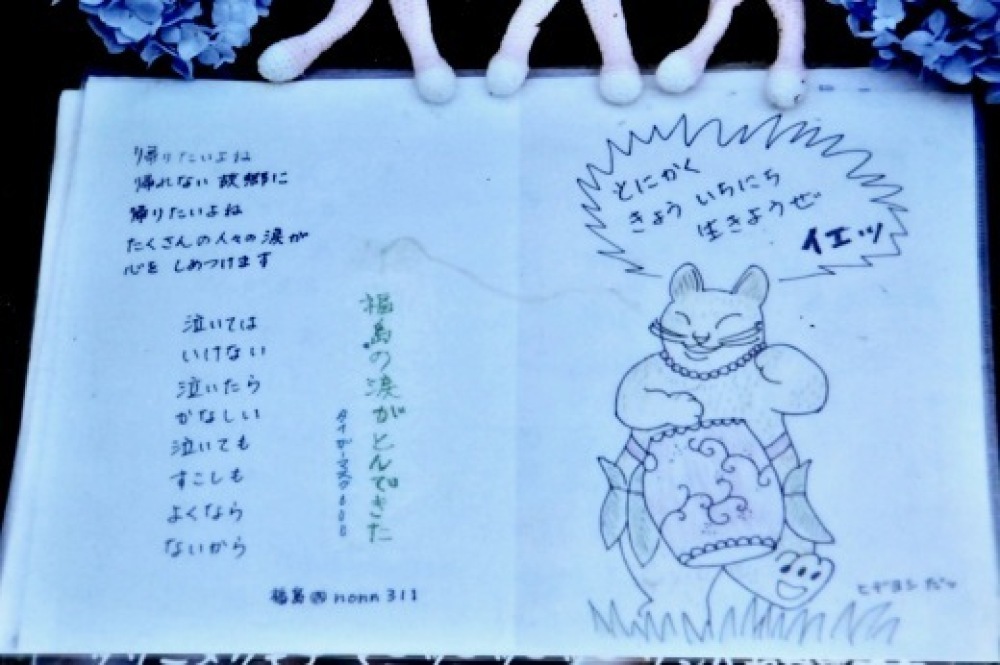 帰りたいよね
帰れない故郷に
帰りたいよね
たくさんの人々の涙が
心をしめつけます
泣いては
いけない
泣いたら
かなしい
泣いても
すこしも
よくなら
ないから
福島の涙がとんできた
タイガーマスク
福島 nonn311
とにかく
きょういちにち
生きようぜ
イエッ
ヒデヨシだッ